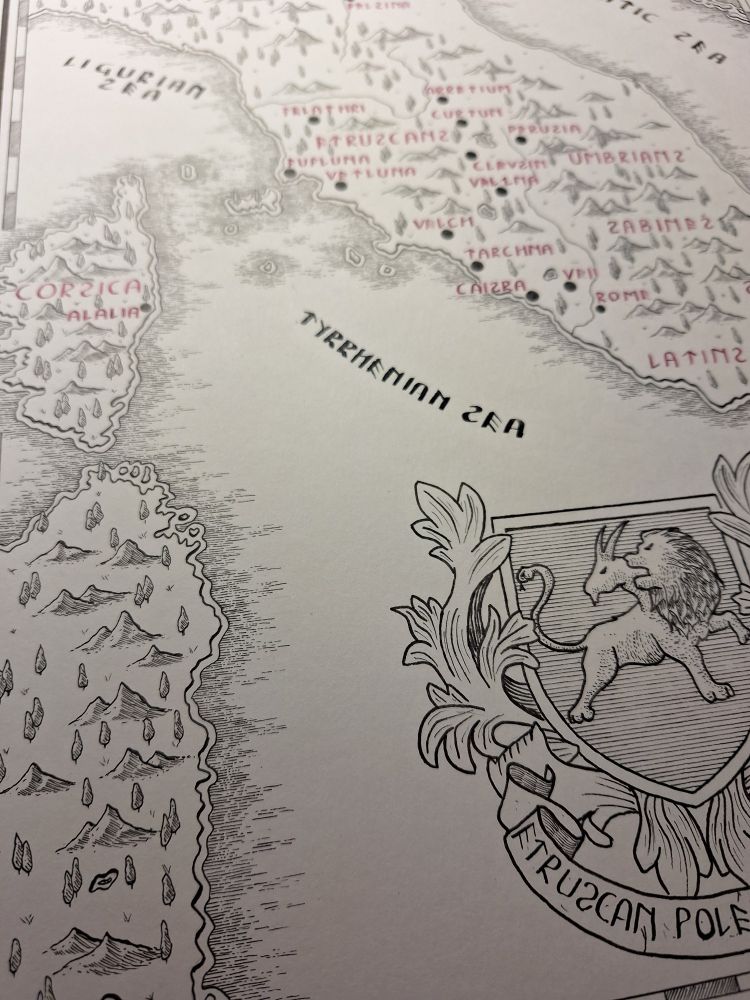 FALZINA
TIC ZEA
LIGURIAN
ZEA
ARRETIUM
FELATHRI
CURTUM
ETRUZCANZ
PERUZIA
FUFLUNA
CLEVZIN
UMBRIANZ
VETLUNA
VELZNA
VELCH
ZABINEZ
TARCHNA
VEII
CORZICA
CAIZRA
ROME
ALALIA
TYRRHENIAN ZEA
LATINZ
ETRUZCAN POLE